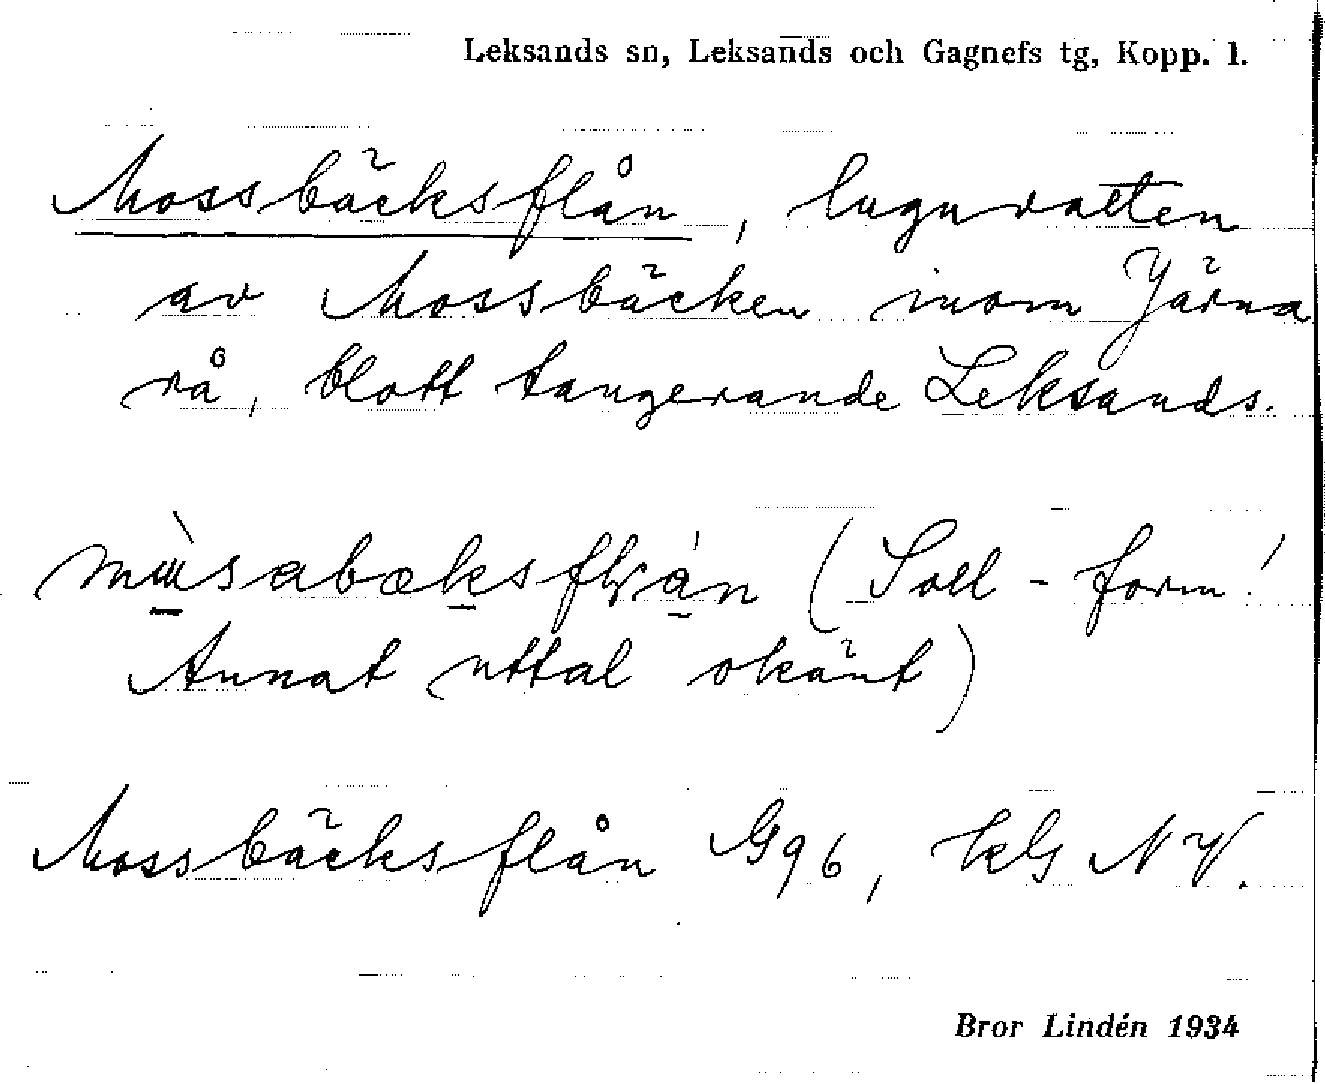 Leksands sn, Leksands och Gagnefs tg, Kopp. l.
Mossbäcksflån, lugnvatten
av Mossbäcken inom Järna
rå, blott tangerande Leksands.
(Soll-form!
Annat uttal okänt)
Mossbäcksflån G96, NV.
Bror Lindén 1934